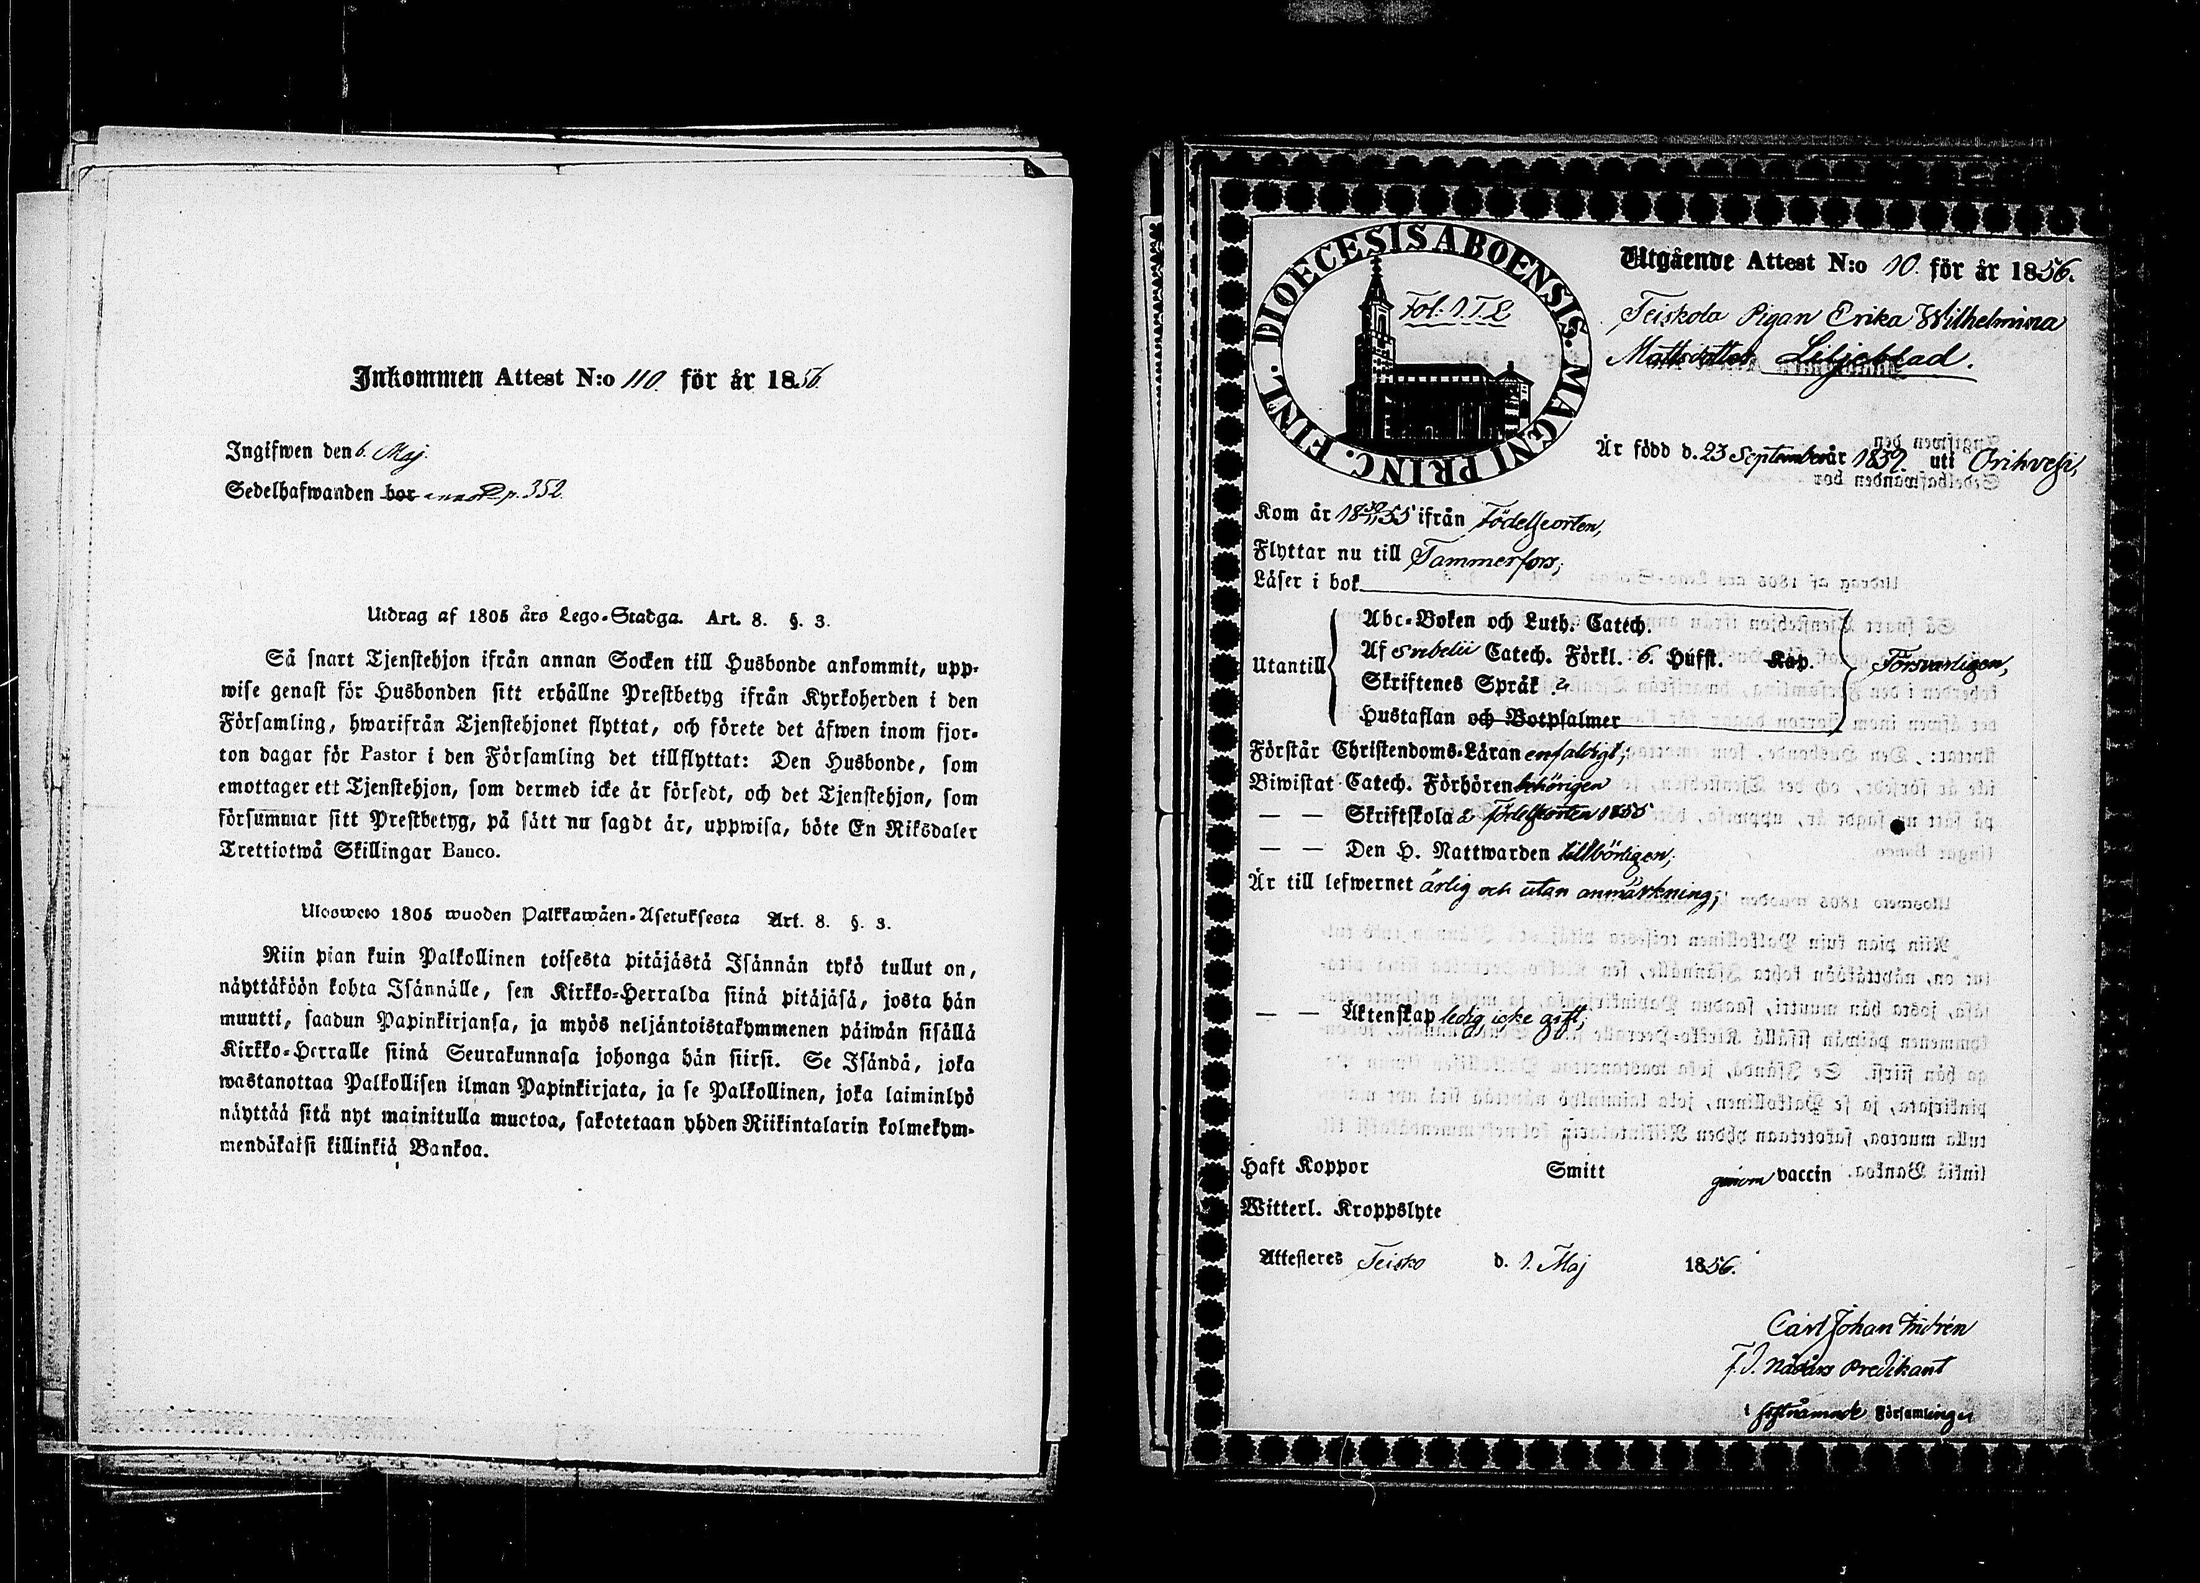 Inkommen Attest N:o 110. för år 1856.
Ingifwen den 6. Maj.
Sedelhafwanden bor p. 352.
Utdrag af 1805 års Lego-Stadga. Art. 8. §. 3.
Så snart Tjenstehjon ifrån annan Socken till Husbonde ankommit, upp-
wise genast för Husbonden sitt erhållne Prestbetyg ifrån Kyrkoherden i den
Församling, hwarifrån Tjenstehjonet flyttat, och förete det äfwen inom fjor-
ton dagar för Pastor i den Församling det tillflyttat: Den Husbonde, som
emottager ett Tjenstehjon, som dermed icke är försedt, och det Tjenstehjon, som
försummar sitt Prestbetyg, på sätt nu sagdt är, uppwisa, böte En Riksdaler
Trettiotwå Skillingar Banco.
Ulosweto 1805 wuoden Palkkawäen-Asetuksesta Art. 8. §. 3.
Niin pian kuin Palkollinen toisesta pitäjästä Isännän tykö tullut on,
näyttäköön kohta Isännälle, sen Kirkko-Herralda siinä pitäjäsä, josta hän
muutti, saadun Papinkirjansa, ja myös neljäntoistakymmenen päiwän sisällä
Kirkko-Herralle siinä Seurakunnasa johonga hän siirsi. Se Isändä, joka
wastanottaa Palkollisen ilman Papinkirjata, ja se Palkollinen, joka laiminlyö
näyttää sitä nyt mainitulla muotoa, sakotetaan yhden Riikintalarin kolmekym-
mendäkaksi killinkiä Bankoa.
DIOECESIS ABOENSIS. MAGNI PRINC. FINL.
Fol: 1. T. L
Utgående Attest N:o 10. för år 1856.
Teiskola Pigan Erika Wilhelmina
Mattsdotter Liljeblad.
Är född d. 23 September år 1839. uti Orihvesi,
Kom år 1855 ifrån Födelseorten,
Flyttar nu till Tammerfors;
Läser i bok
Utantill
Abc-Boken och Luth. Catech.
Af Svebelii Catech. Förkl. 6. Hufst. Kap.
Skriftenes Språk
Hustaflan och Botpsalmer
Försvarligen,
Förstår Christendoms-Läran enfaldigt;
Biwistat Catech. Förhören behörigen
— — Skriftskola å Födelseorten 1855
— — Den H. Nattwarden tillbörligen;
Är till lefwernet ärlig och utan anmärkning;
— — Äktenskap ledig, icke gift;
Haft Koppor Smitt genom vaccin
Witterl. Kroppslyte
Attesteres Teisko d. 1. Maj 1856.
Carl Johan Andrén
Nådårs Predikant
i sistnämnde Församlingen